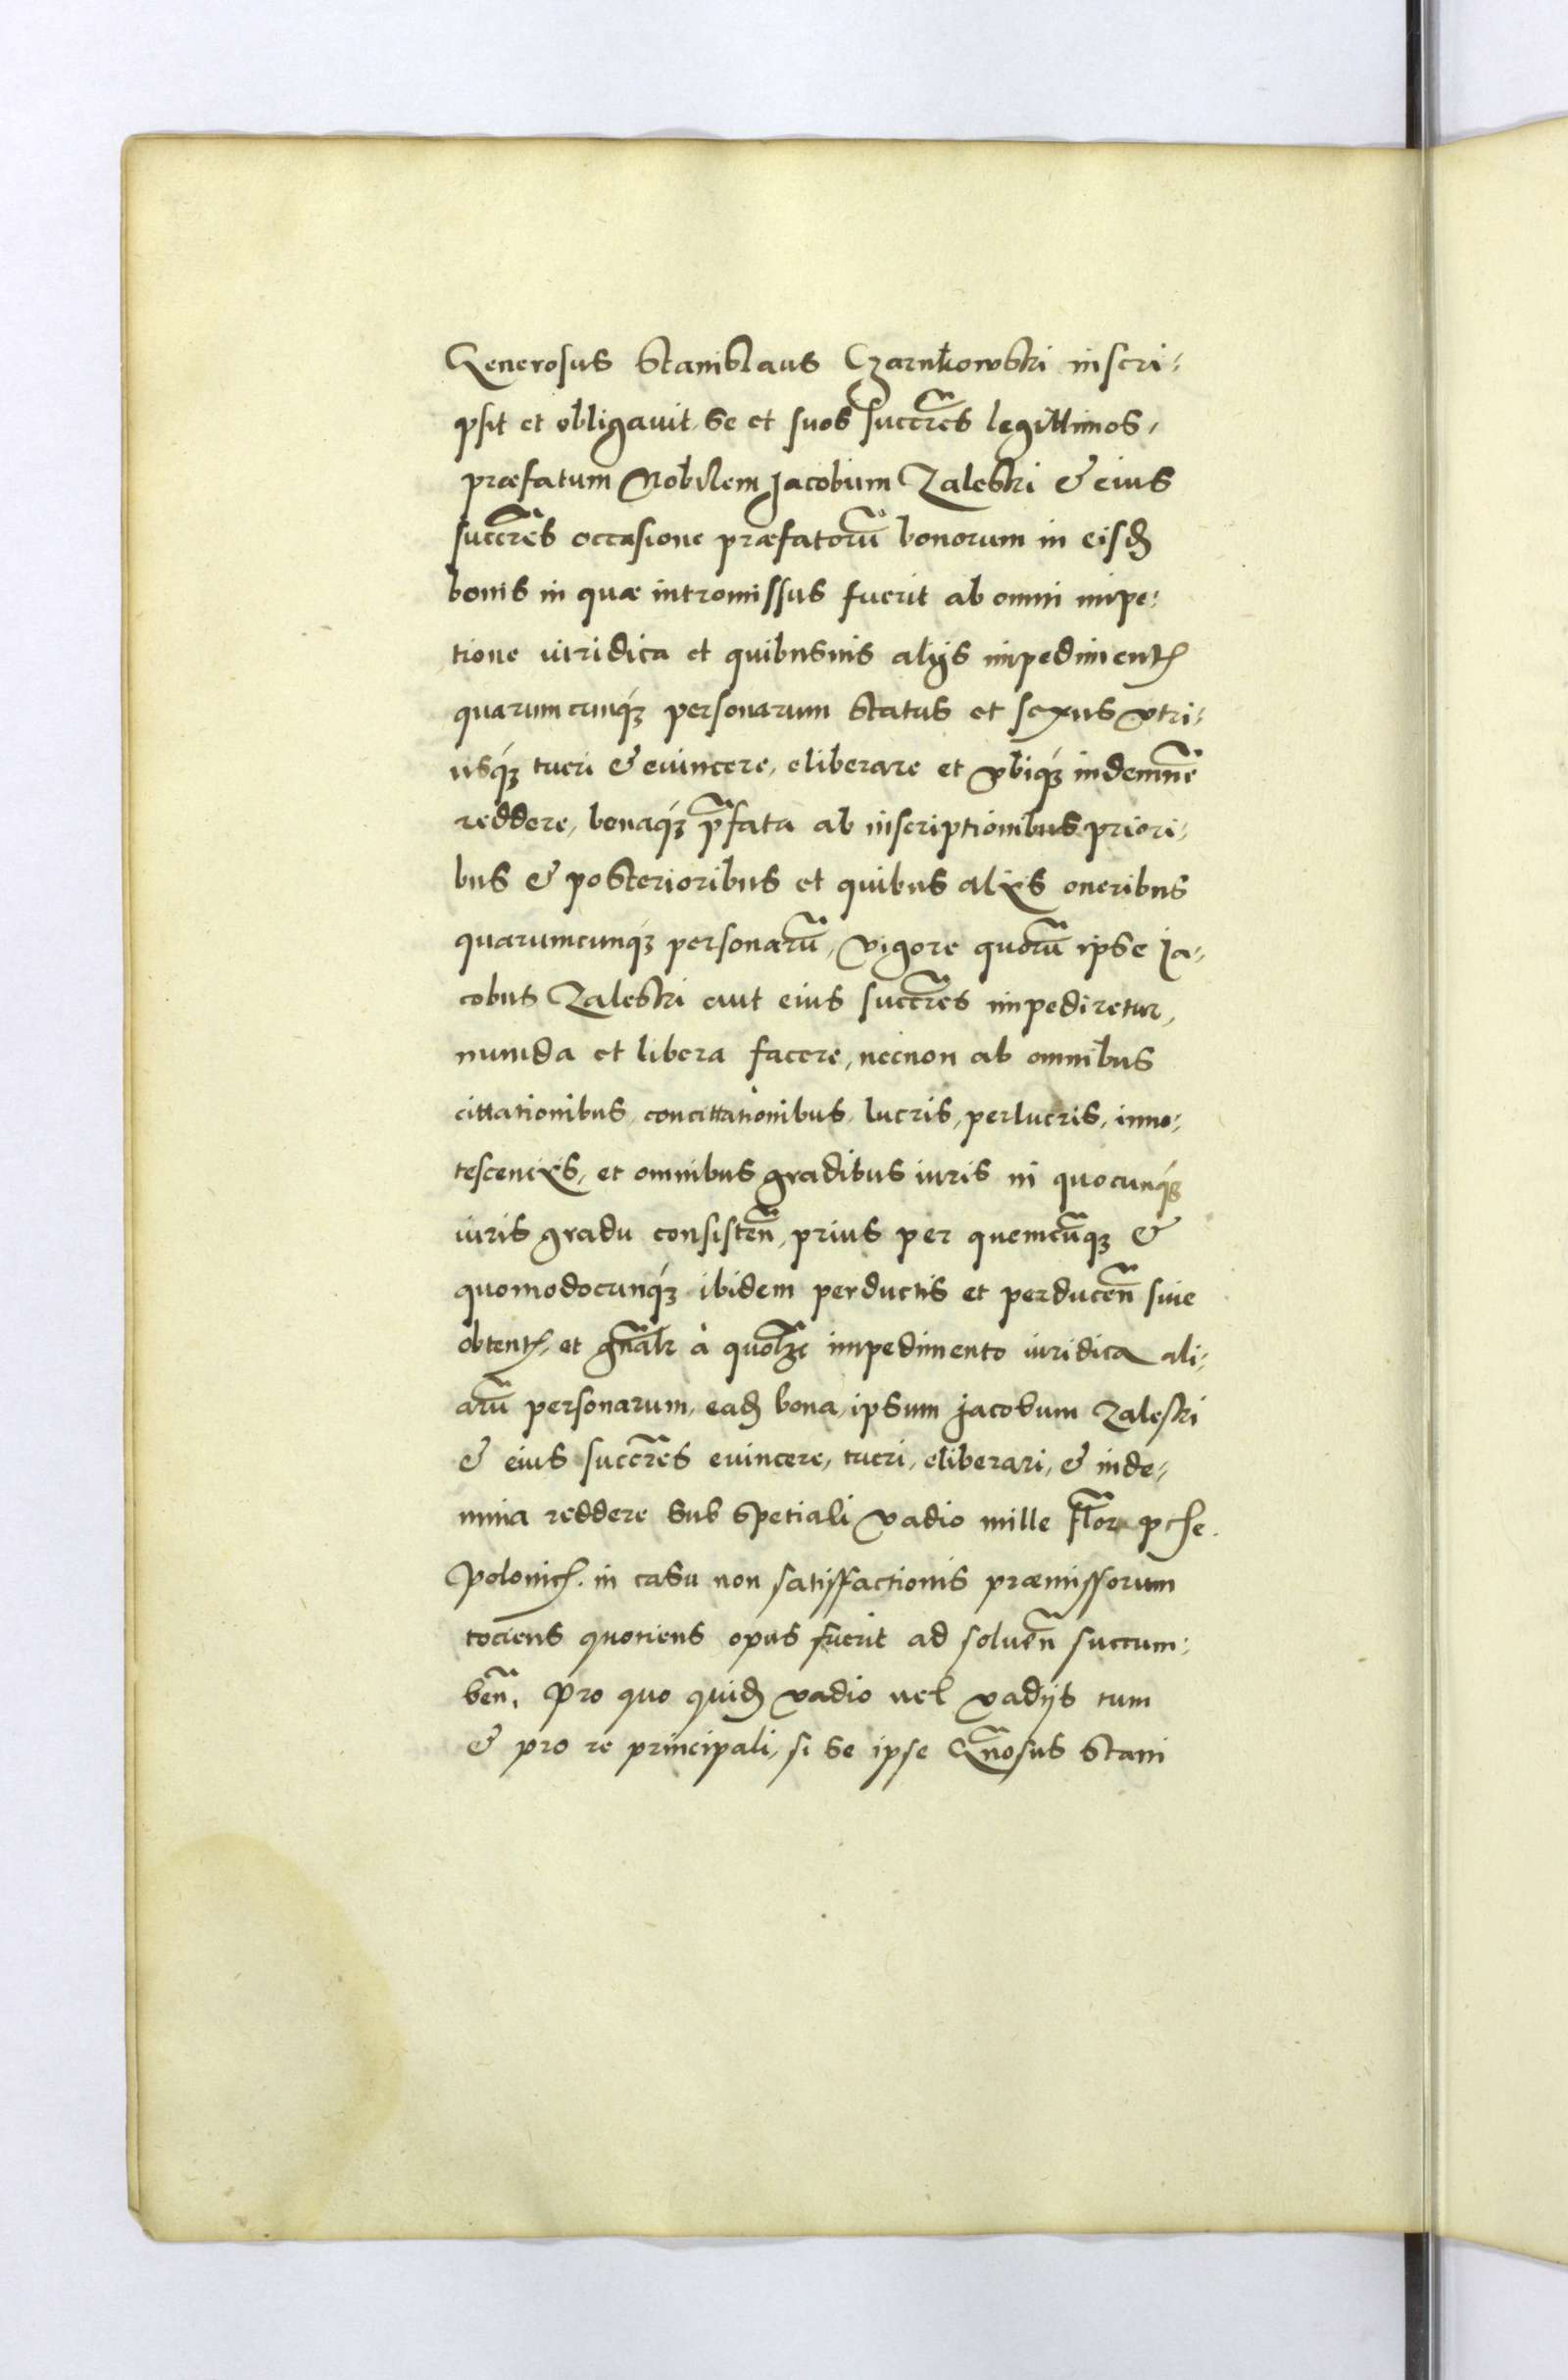 Generosus Stanislaus Czarnkowski inscri-
psit et obligauit se et suos succr̃es legittimos,
præfatum Nobilem Jacobum Zaleski & eius
succr̃es occasione præfatorũ bonorum in eisđ
bonis in quæ intromissus fuerit ab omni impe-
tione iuridica et quibusuis alijs impedimentꝭ
quarumcunqꝫ personarum status et sexus vtri-
usqꝫ tueri & euincere, eliberare et vbiqꝫ indemnẽ
reddere, bonaqꝫ p̃fata ab inscriptionibus priori-
bus & posterioribus et quibus alijs oneribus
quarumcunqꝫ personarũ, vigore quorũ ipse Ja-
cobus Zaleski aut eius succr̃es impediretur,
munda et libera facere, necnon ab omnibus
cittationibus, concittationibus, lucris, perlucris, inno-
tescencijs, et omnibus gradibus iuris in quocunqꝫ
iuris gradu consisteñ, prius per quemcũqꝫ &
quomodocunqꝫ ibidem perductis et perduceñ siue
obtentꝭ, et gñalr à quoł̃ꝫ impedimento iuridica ali-
arũ personarum, eađ bona, ipsum Jacobum Zaleski
& eius succr̃es euincere, tueri, eliberari, & inde-
mnia reddere sub spetiali vadio mille flor̃ pcſe.
Polonicꝭ. in casu non satisfactionis præmissorum
tociens quotiens opus fuerit ad solueñ succum-
beñ. Pro quo quiđ vadio uel vadijs tum
& pro re principali, si se ipse Gñosus Stani